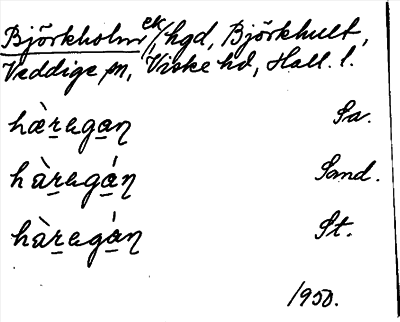 Björkholm ek, hgd, Björkhult,
Veddige sn, Viske hd, Hall. l.
hæragaɳ Sa.
hàragáɳ Sand.
hàragáɳ St.
1950.